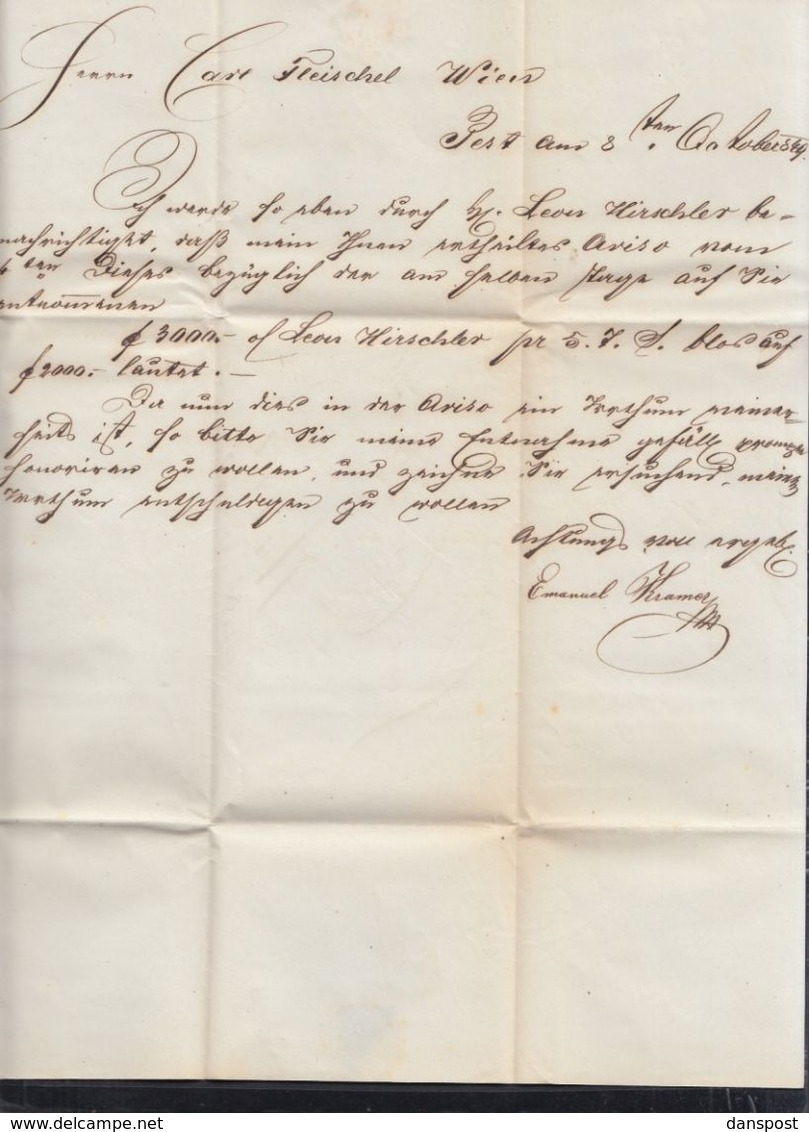 Herrn Carl Fleischel Wien
Pest am 8ten October
Ich werde so eben durch H. Leon Hirschler be-
nachrichtiget, daß mein Ihnen ertheiltes Aviso vom
4ten dieses bezüglich der am selben Tage auf Sie
entnommenen
f 3000.- o/ Leon Hirschler pr blos auf
f 2000.- lautet. -
Da nun dies in der Aviso ein Irrthum meiner-
seits ist, so bitte Sie meine Entnahme gefäll prompt
honoriren zu wollen, und zeichne Sie ersuchend, meinen
Irrthum entschuldigen zu wollen
Achtungsvoll ergeb.
Emanuel Kramer
delcampe.net
danspost